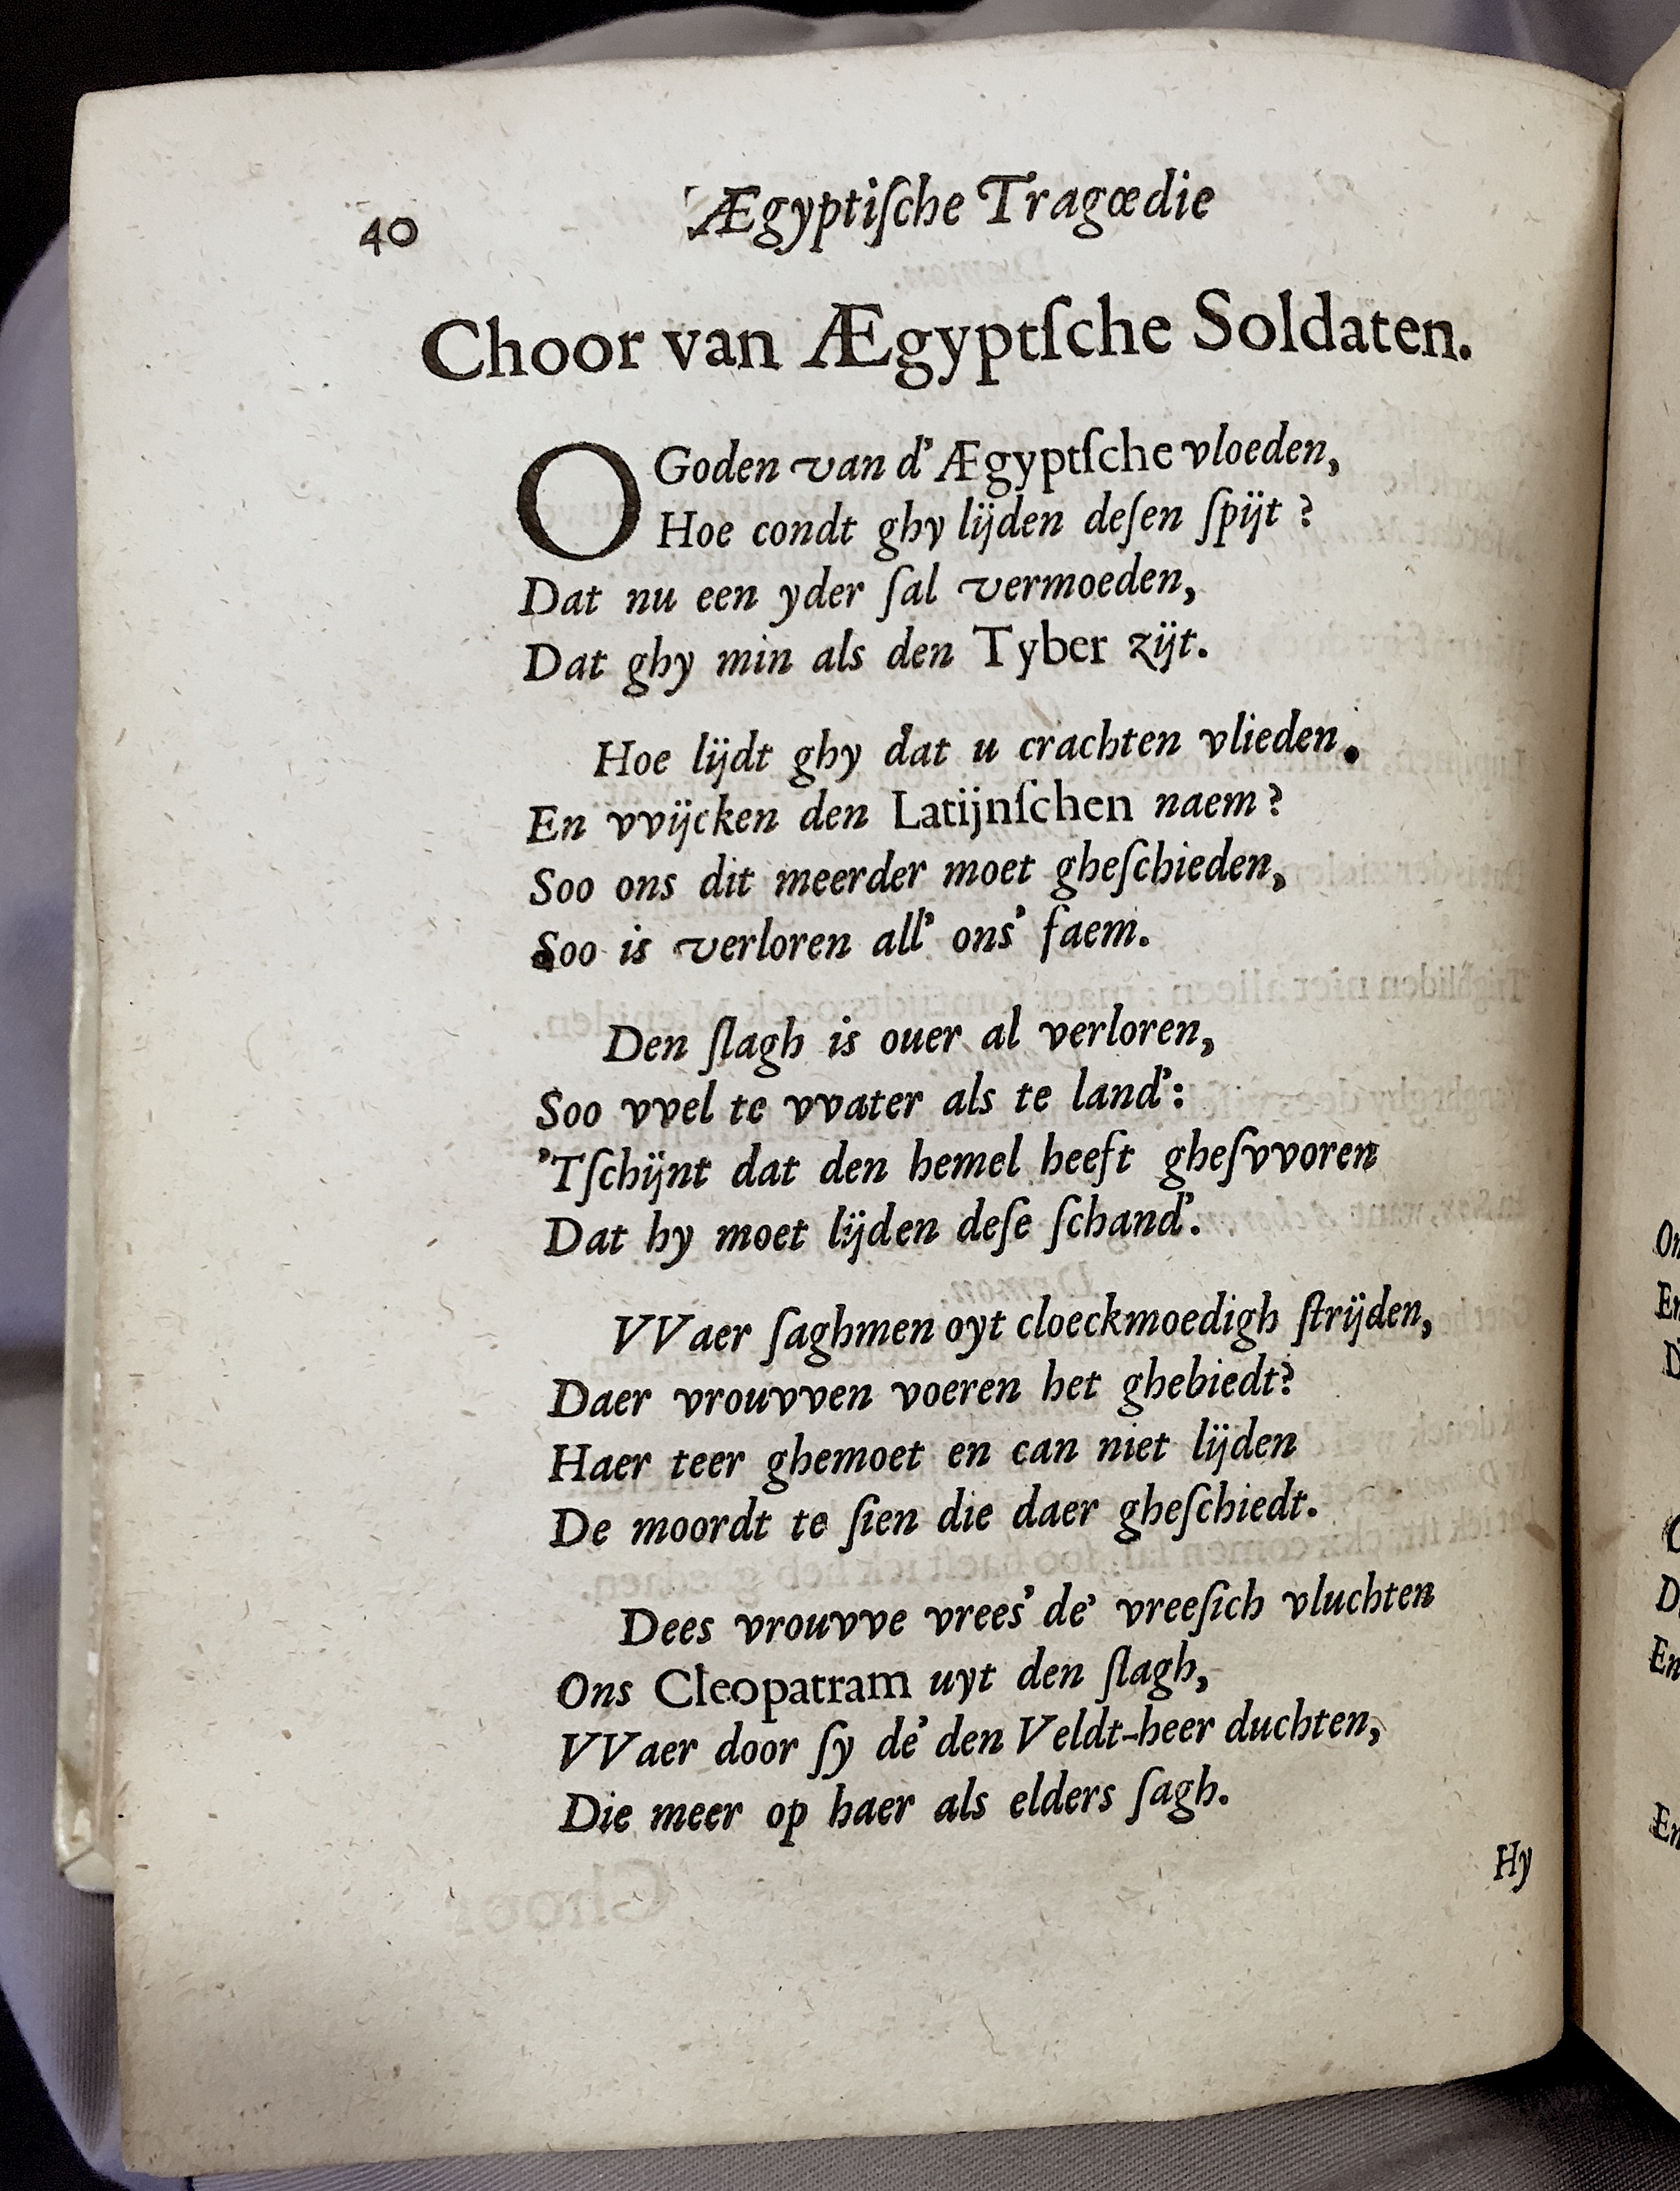 40 Ægyptiſche Tragœdie
Choor van Ægyptſche Soldaten.
O Goden van d' Ægyptſche vloeden,
Hoe condt ghy lijden deſen ſpijt ?
Dat nu een yder ſal vermoeden,
Dat ghy min als den Tyber zijt.
Hoe lijdt ghy dat u crachten vlieden.
En vvijcken den Latijnſchen naem ?
Soo ons dit meerder moet gheſchieden,
Soo is verloren all' ons' faem.
Den ſlagh is ouer al verloren,
Soo vvel te vvater als te land':
'Tſchijnt dat den hemel heeft gheſvvoren
Dat hy moet lijden deſe ſchand'.
VVaer ſaghmen oyt cloeckmoedigh ſtrijden,
Daer vrouvven voeren het ghebiedt?
Haer teer ghemoet en can niet lijden
De moordt te ſien die daer gheſchiedt.
Dees vrouvve vrees' de' vreeſich vluchten
Ons Cleopatram uyt den ſlagh,
VVaer door ſy de' den Veldt-heer duchten,
Die meer op haer als elders ſagh.
Hy